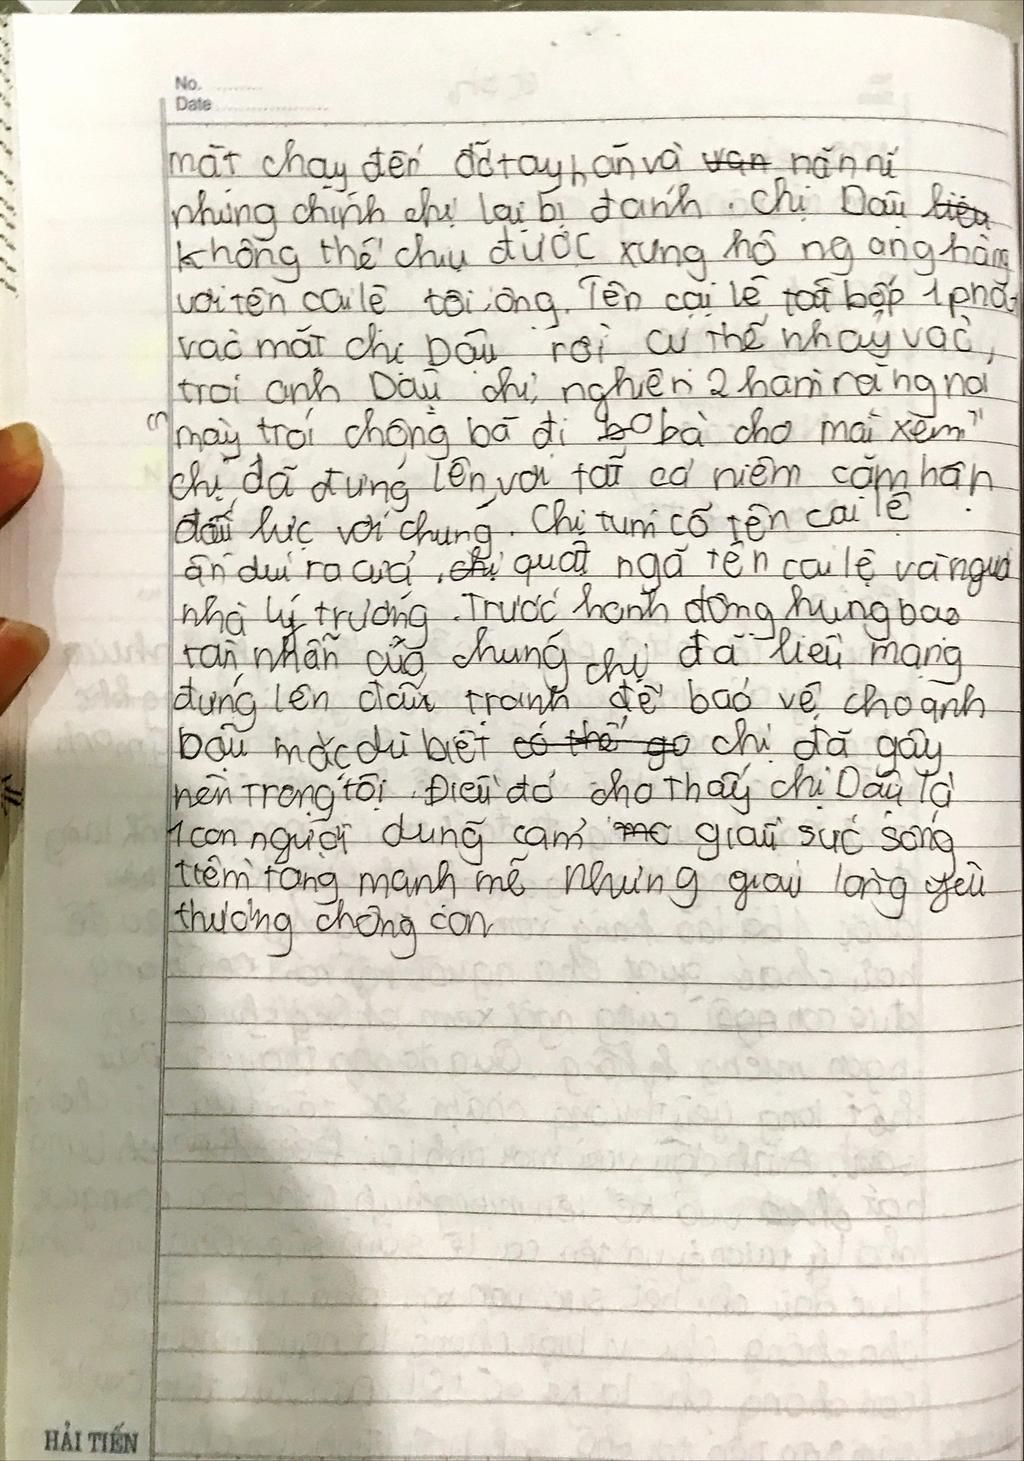 No.
Date
mặt chạy đến đỡ tay hắn và van năn nỉ
nhưng chính chị lại bị đánh. Chị Dậu liều
không thể chịu được xưng hô ngang hàng
với tên cai lệ tôi, ông. Tên cai lệ tát bốp 1 phát
vào mắt chị Dậu rồi cứ thế nhảy vào
trói anh Dậu chị nghiến 2 hàm răng nói
"mày trói chồng bà đi bo bà cho mài xem"
chị đã đứng lên với tất cả niềm căm hận
đấu lực với chúng. Chị túm cổ tên cai lệ
ấn dúi ra cửa, chị quật ngã tên cai lệ và người
nhà lý trưởng. Trước hành động hung bạo
tàn nhẫn của chúng chị đã liều mạng
đứng lên đấu tranh để bảo vệ cho anh
Dậu mặc dù biết có thể go chị đã gây
nên trọng tội. Điều đó cho thấy chị Dậu là
1 con người dũng cảm mc giàu sức sống
tiềm tàng mạnh mẽ nhưng giàu lòng yêu
thương chồng con
HẢI TIẾN